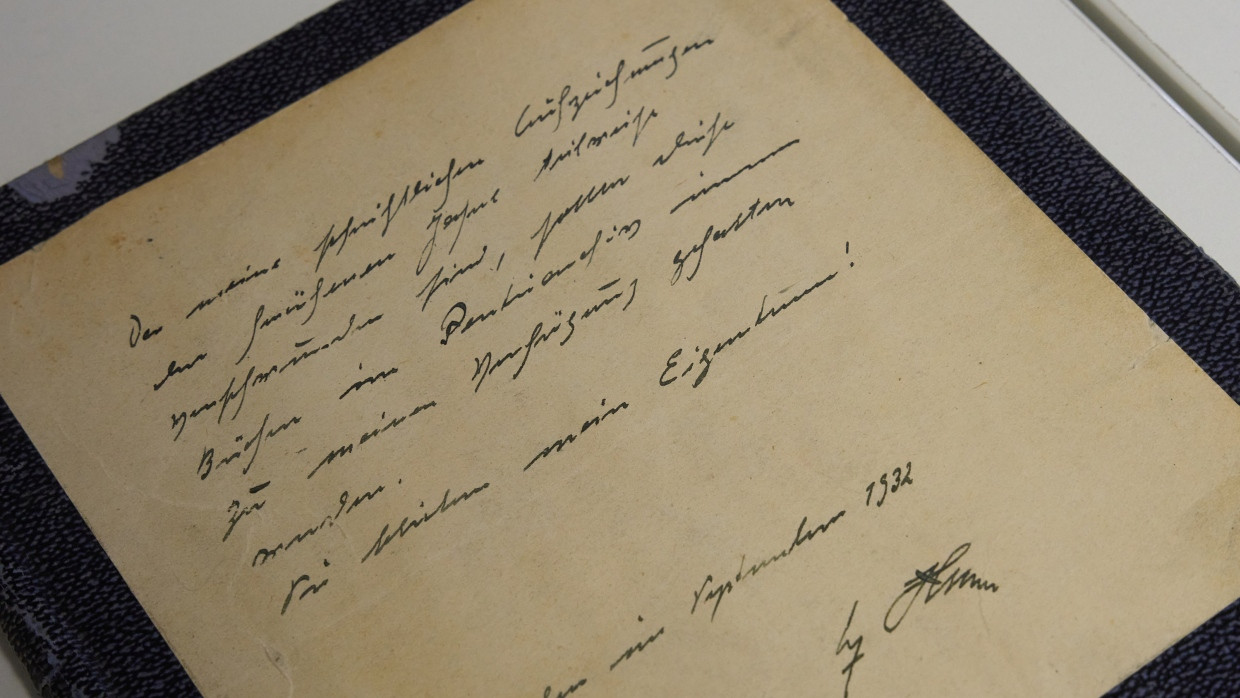 Da meine schriftlichen Aufzeichnungen
der früheren Jahre teilweise
verschwunden sind, sollen diese
Bücher im Zentralarchiv immer
zu meiner Verfügung gehalten
werden.
Sie bleiben mein Eigentum!
im September 1932